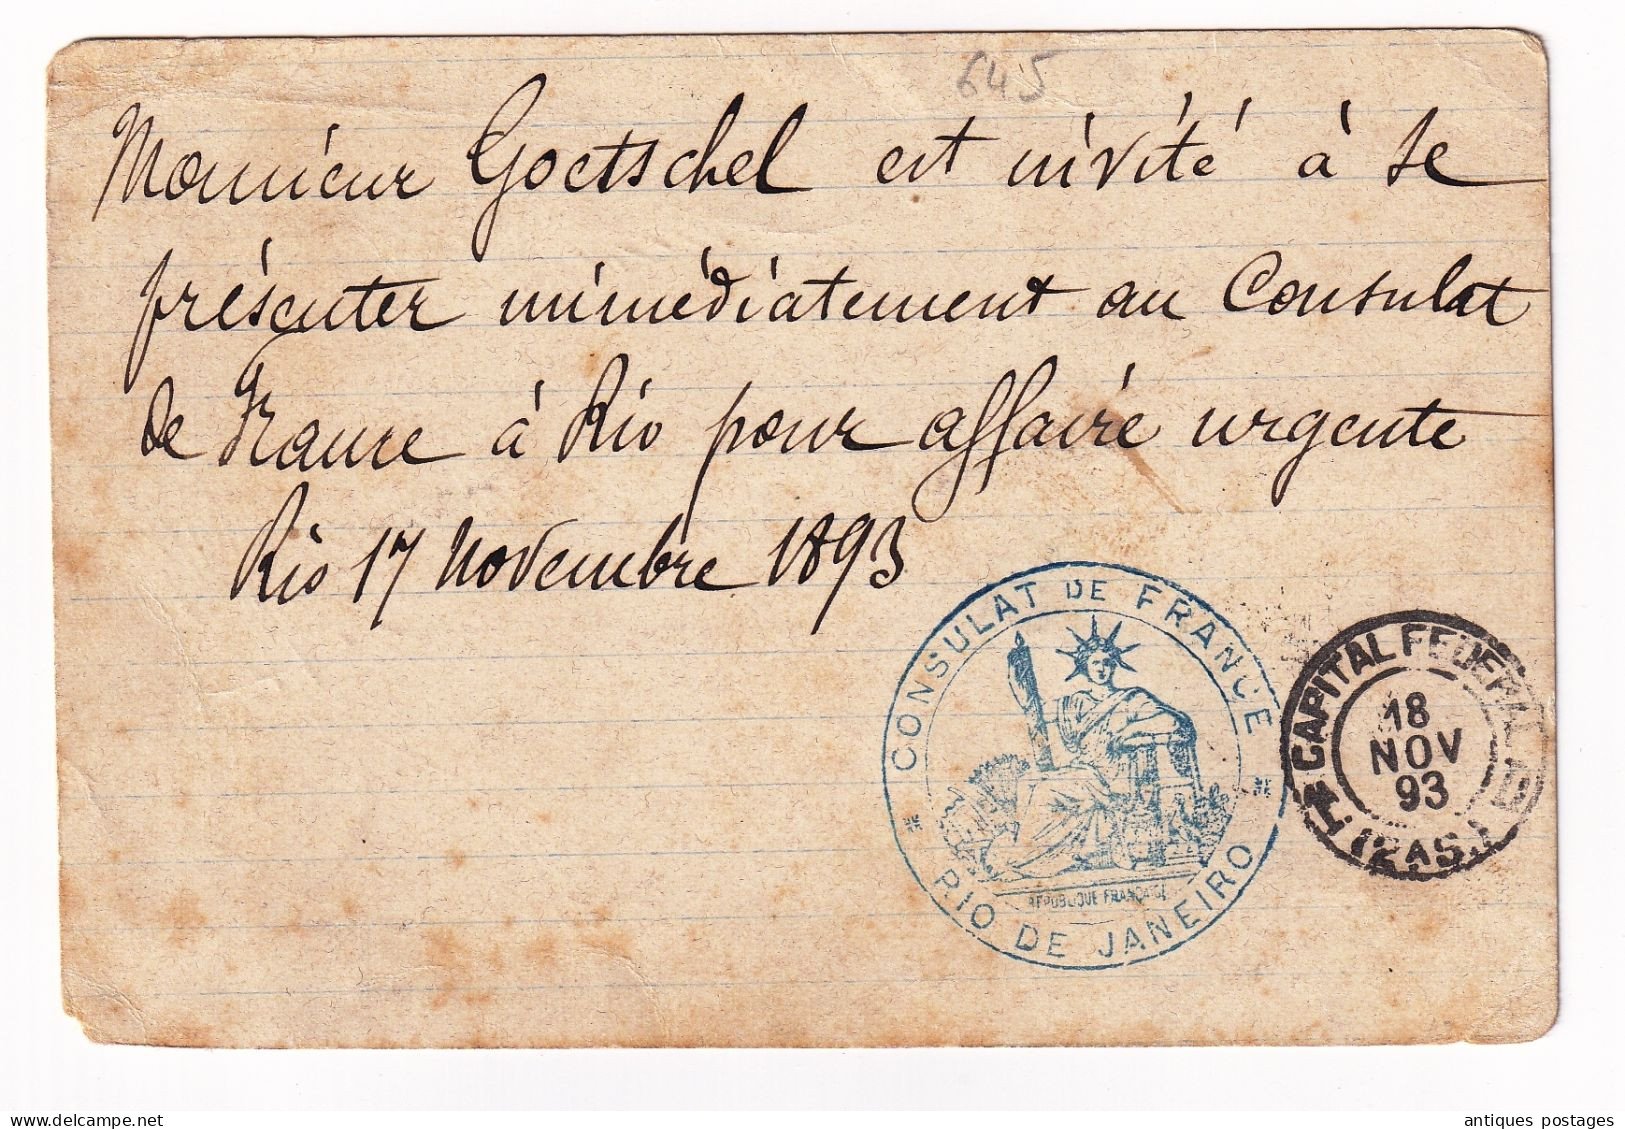 645
Monsieur Goetschel est invité à se
présenter immédiatement au Consulat
de France à Rio pour affaire urgente
Rio 17 Novembre 1893
CONSULAT DE FRANCE
RIO DE JANEIRO
REPUBLIQUE FRANÇAISE
CAPITAL FEDERAL
18
NOV
93
antiques postages